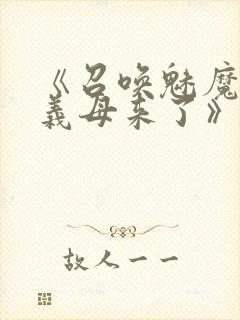 《召唤魅魔
義母来了》
故人一一